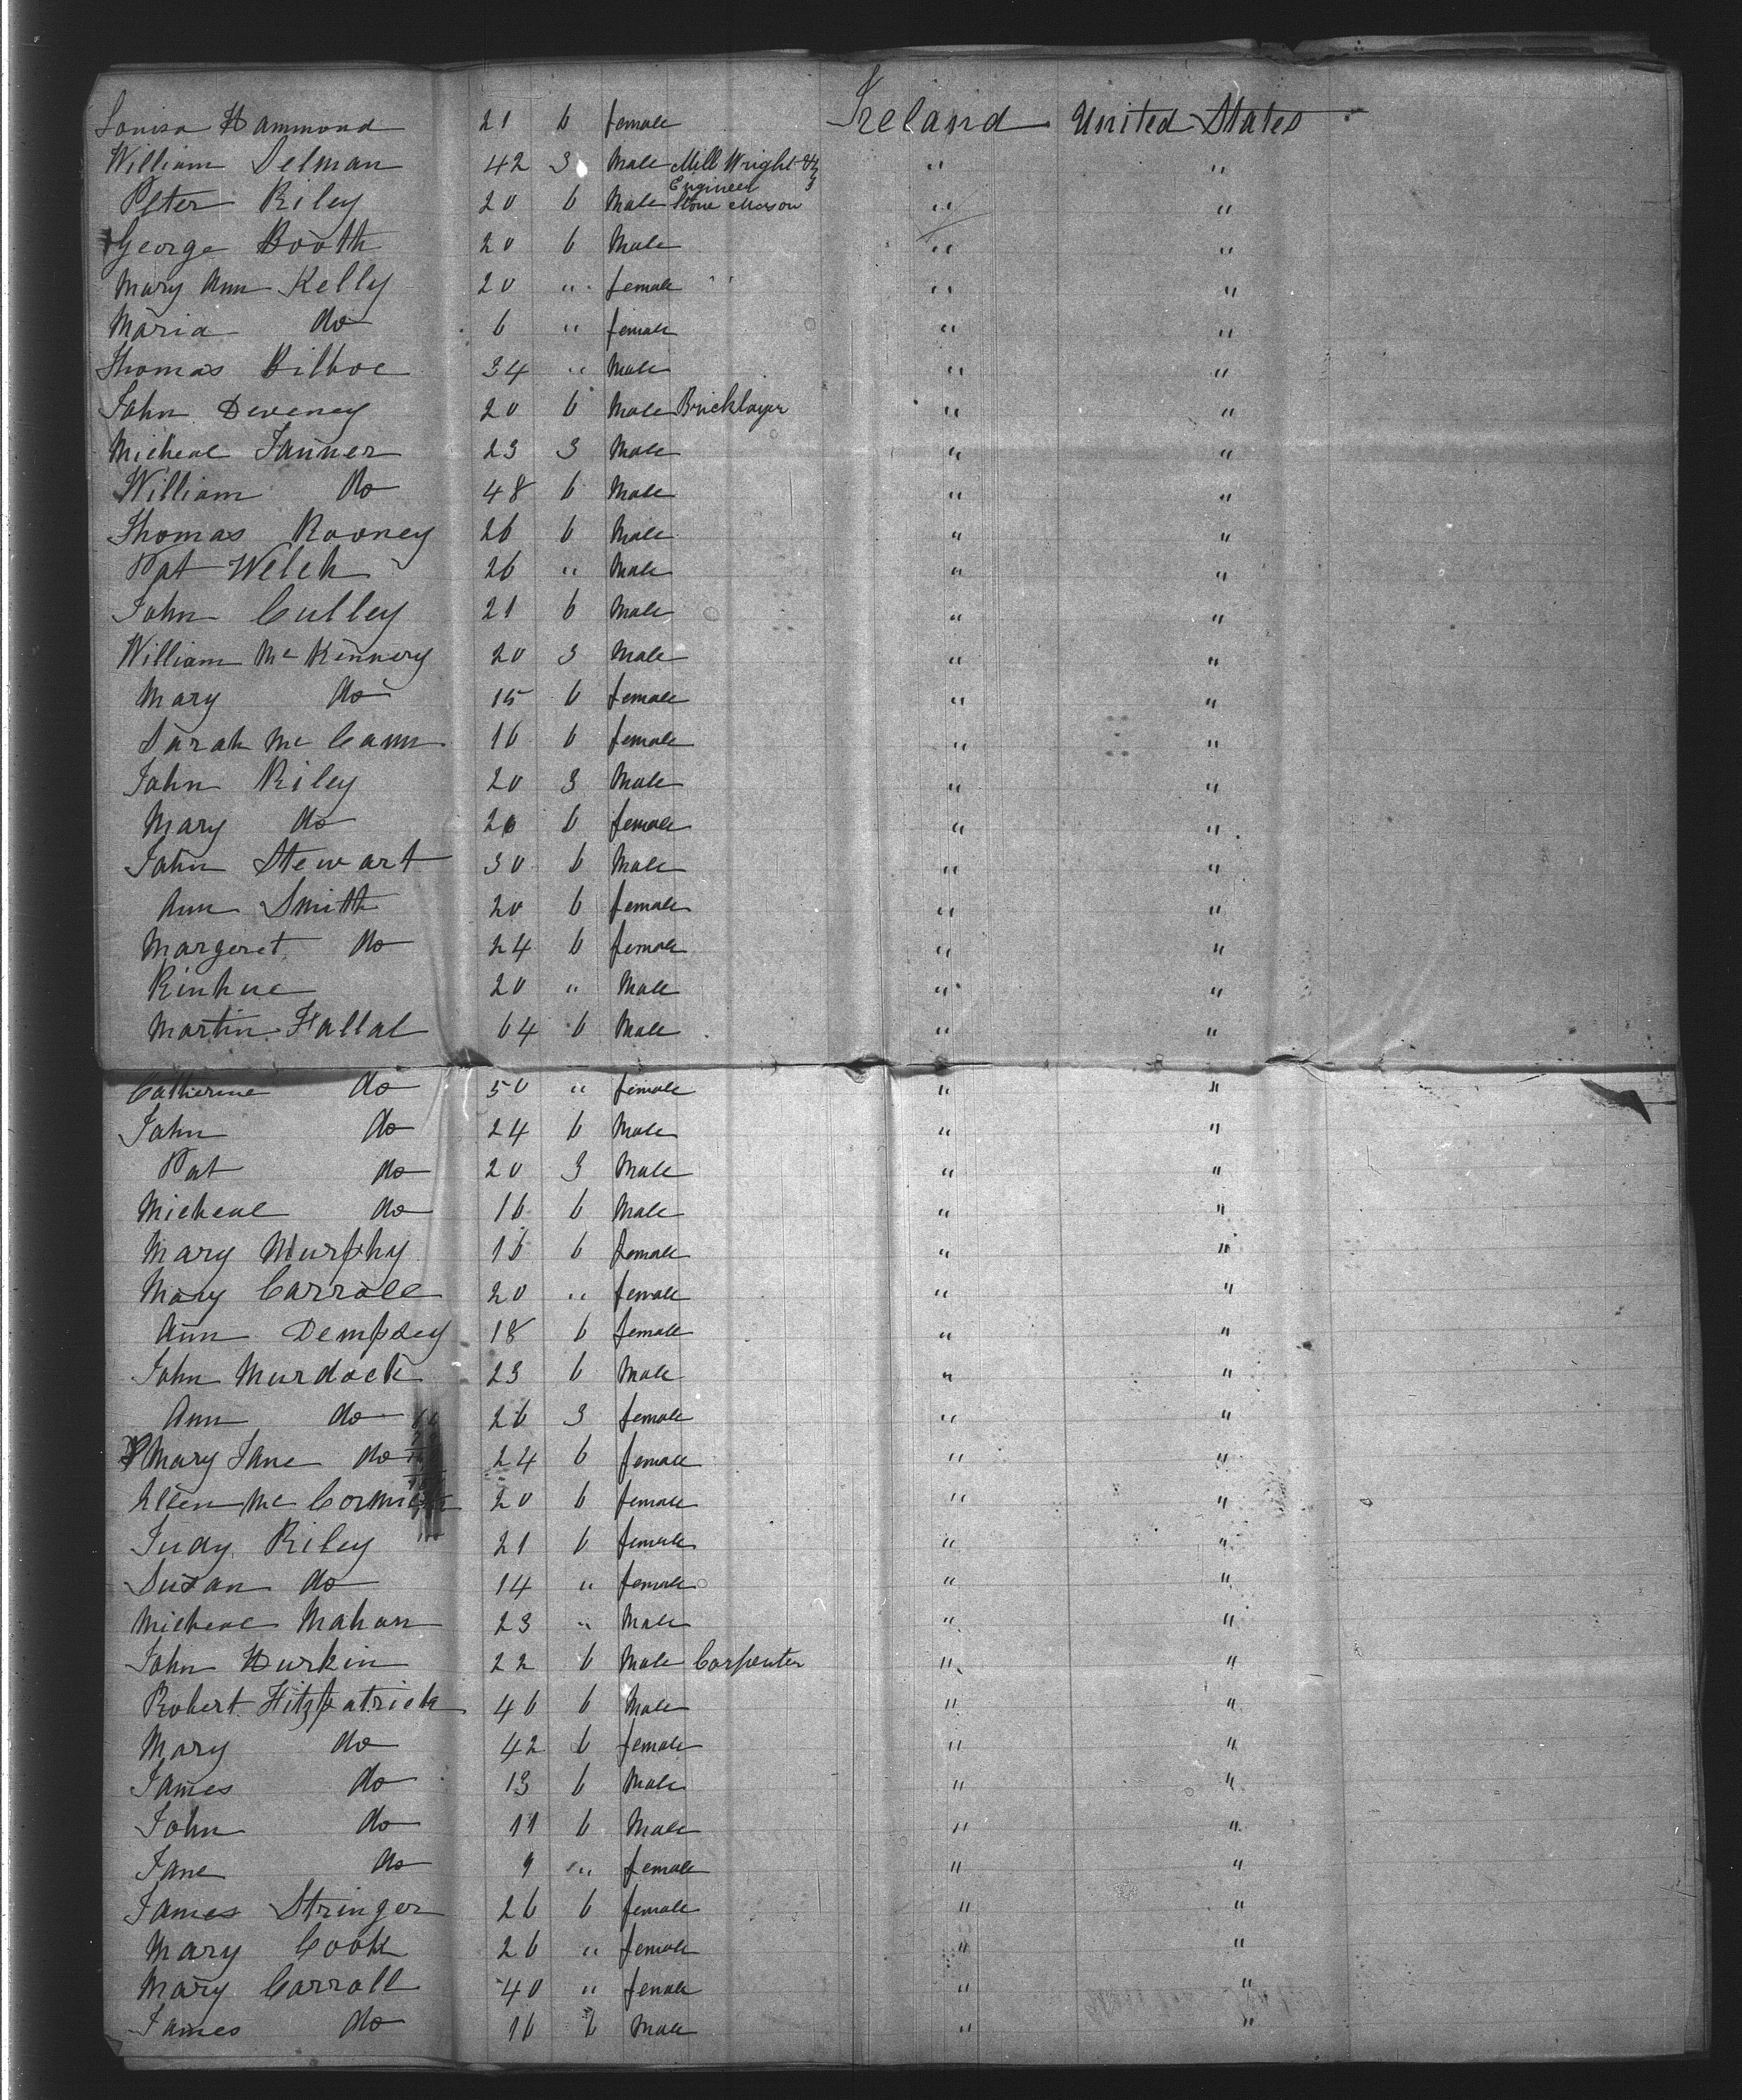 Louisa Hammond 21 6 female Ireland United States
William Selman 42 3 Male Mill Wright & Engineer " "
Peter Riley 20 6 Male Stone Mason " "
George Booth 20 6 Male " "
Mary Ann Kelly 20 " female " "
Maria do 6 " female " "
Thomas Bilboe 34 " Male " "
John Deveney 20 6 Male Bricklayer " "
Micheal Tanner 23 3 Male " "
William do 48 6 Male " "
Thomas Rooney 26 6 Male " "
Pat Welch 26 " Male " "
John Culley 21 6 Male " "
William Mc Kennery 20 3 Male " "
Mary do 15 6 female " "
Sarah Mc Cann 16 6 female " "
John Riley 20 3 Male " "
Mary do 20 6 female " "
John Stewart 30 6 Male " "
Ann Smith 20 6 female " "
Margeret do 24 6 female " "
20 " Male " "
Martin Fallal 64 6 Male " "
Catherine do 50 " female " "
John do 24 6 Male " "
Pat do 20 3 Male " "
Micheal do 16 6 Male " "
Mary Murphy 16 6 female " "
Mary Carroll 20 " female " "
Ann Dempsey 18 6 female " "
John Murdock 23 6 Male " "
Ann do 26 3 female " "
Mary Jane do 24 6 female " "
Ellen Mc Cormick 20 6 female " "
Judy Riley 21 6 female " "
Susan do 14 " female " "
Micheal Mahan 23 " Male " "
John Durkin 22 6 Male Carpenter " "
Robert Fitzpatrick 46 6 Male " "
Mary do 42 6 female " "
James do 13 6 Male " "
John do 11 6 Male " "
Jane do 9 " female " "
James Stringer 26 6 female " "
Mary Cook 26 " female " "
Mary Carroll 40 " female " "
James do 16 6 Male " "